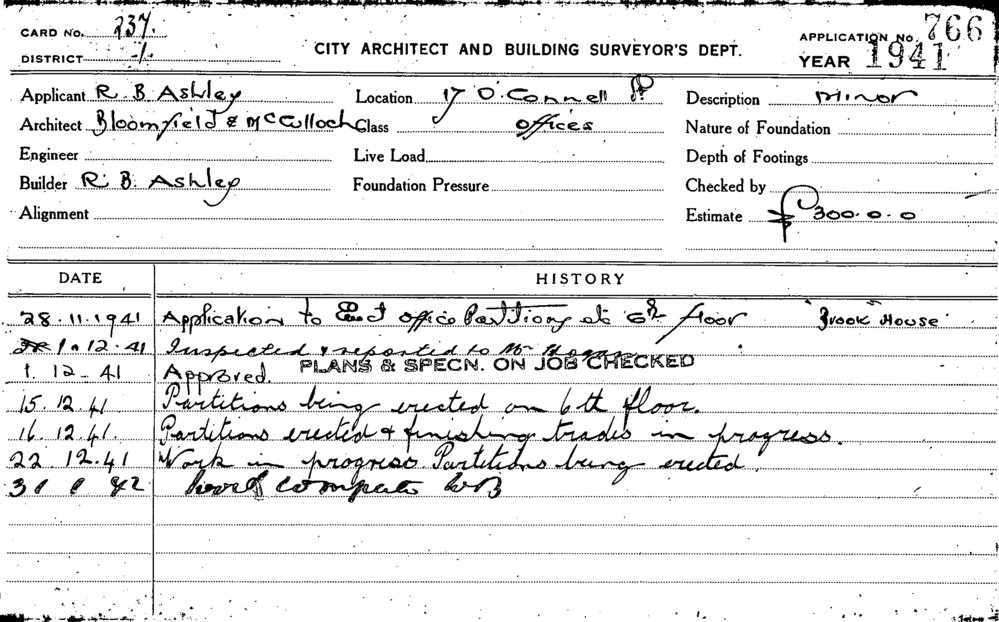 CARD No. 237.
DISTRICT 1
CITY ARCHITECT AND BUILDING SURVEYOR'S DEPT.
APPLICATION No. 766
YEAR 1941
Applicant R. B. Ashley
Location 17 O'Connell St
Description Minor
Architect Bloomfield & McCulloch
Class offices
Nature of Foundation
Engineer
Live Load
Depth of Footings
Builder R. B. Ashley
Foundation Pressure
Checked by
Alignment
Estimate £300.0.0
DATE HISTORY
28.11.1941 Application to Erect office Partitions at 6th floor "Brook House"
1.12.41 Inspected & reported to Mr
PLANS & SPECN. ON JOB CHECKED
1.12-41 Approved.
15.12.41 Partitions being erected on 6th floor.
16.12.41. Partitions erected & finishing trades in progress.
22.12.41 Work in progress Partitions being erected.
42 Work complete WB